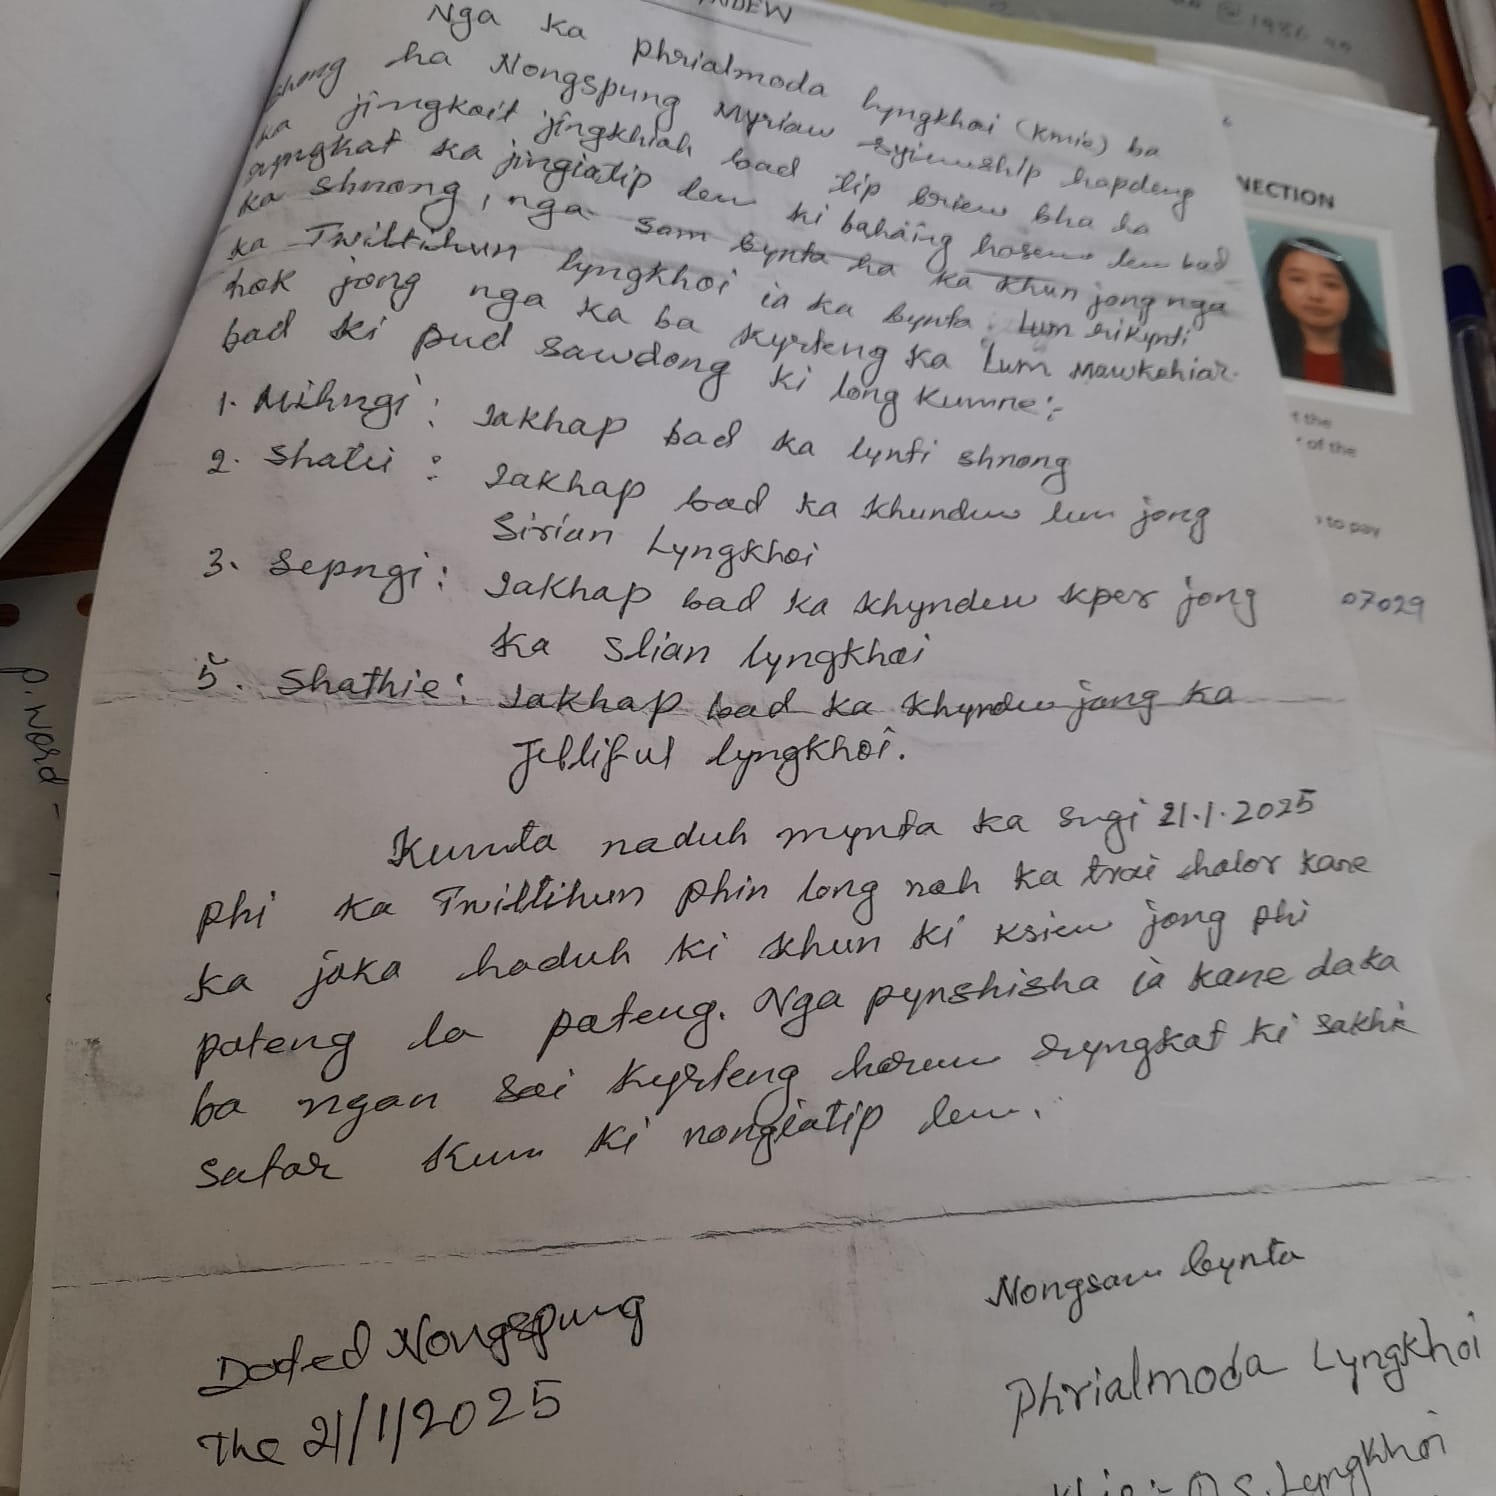 NDEW
Nga ka Phrialmoda lyngkhoi (Kmie) ba
shong ha Nongspung Myriaw Syiemship hapdeng
ka jingkoit jingkhiah bad tip briew bha ha
ryngkat ka jingiatip lem ki bahaing hasem lem bad
ka shnong, nga sam bynta ha ka khun jong nga
ka Twiltihun lyngkhoi ia ka bynta lum rikynti
hok jong nga ka ba kyrteng ka Lum Mawkehiar.
bad ki pud sawdong ki long kumne:-
1. Mihngi : Iakhap bad ka lynti shnong
2. Shatei : Iakhap bad ka khundew lum jong
Sirian Lyngkhoi
3. Sepngi : Iakhap bad ka khyndew kper jong
ka Slian lyngkhoi
5. Shathie : Iakhap bad ka khyndew jong ka
Jelliful lyngkhoi.
Kumta naduh mynta ka sngi 21.1.2025
phi ka Twiltihun phin long noh ka trai halor kane
ka jaka haduh ki khun ki ksiew jong phi
pateng la pateng. Nga pynshisha ia kane daka
ba ngan soi kyrteng harum ryngkat ki sakhi
satar kum ki nongiatip lem.
Dated Nongspung
The 21/1/2025
Nongsam bynta
Phrialmoda Lyngkhoi
S. Lyngkhoi
NECTION
t the
of the
to pay
07029
P. Word -
@1986